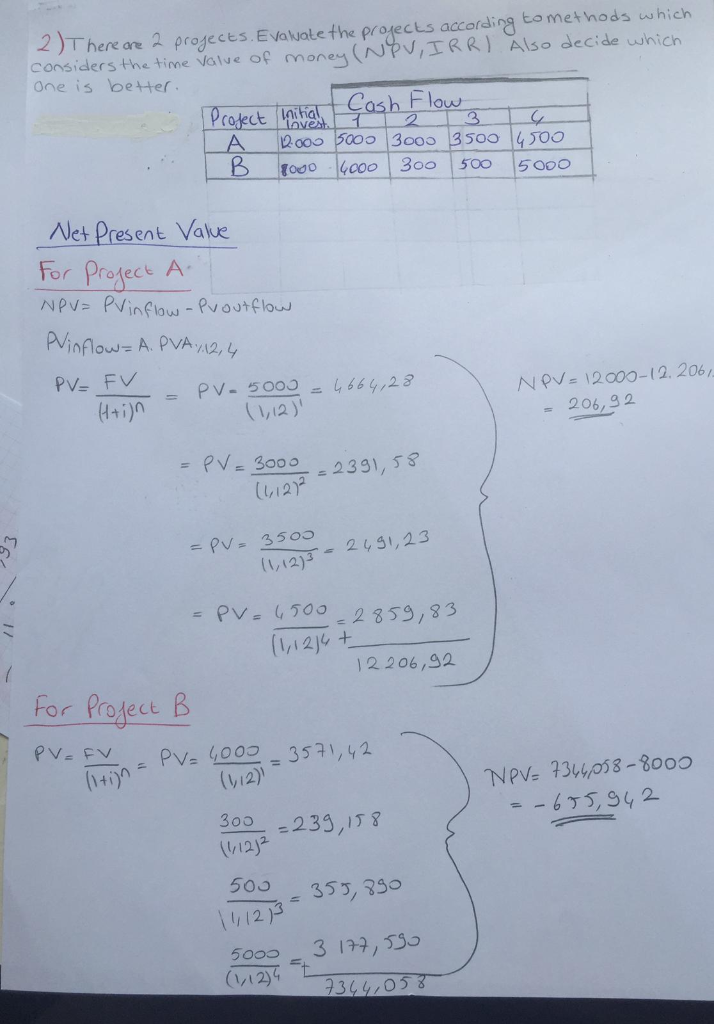 2) There are 2 projects. Evaluate the projects according to methods which
considers the time value of money (NPV, IRR) Also decide which
one is better.
Cash Flow
Project Initial Invest. 1 2 3 4
A 12000 5000 3000 3500 4500
B 8000 4000 300 500 5000
Net Present Value
For Project A
NPV= PVinflow - PVoutflow
PVinflow= A. PVA%12,4
PV= FV/(1+i)^n = PV= 5000/(1,12)^1 = 4664,28
= PV= 3000/(1,12)^2 = 2391,58
= PV= 3500/(1,12)^3 = 2491,23
= PV= 4500/(1,12)^4 = 2859,83
+
12206,92
NPV= 12000-12.206,
= 206,92
For Project B
PV= FV/(1+i)^n = PV= 4000/(1,12)^1 = 3571,42
300/(1,12)^2 = 239,158
500/(1,12)^3 = 355,890
5000/(1,12)^4 = 3177,590
+
7344,058
NPV= 7344,058-8000
= -655,942